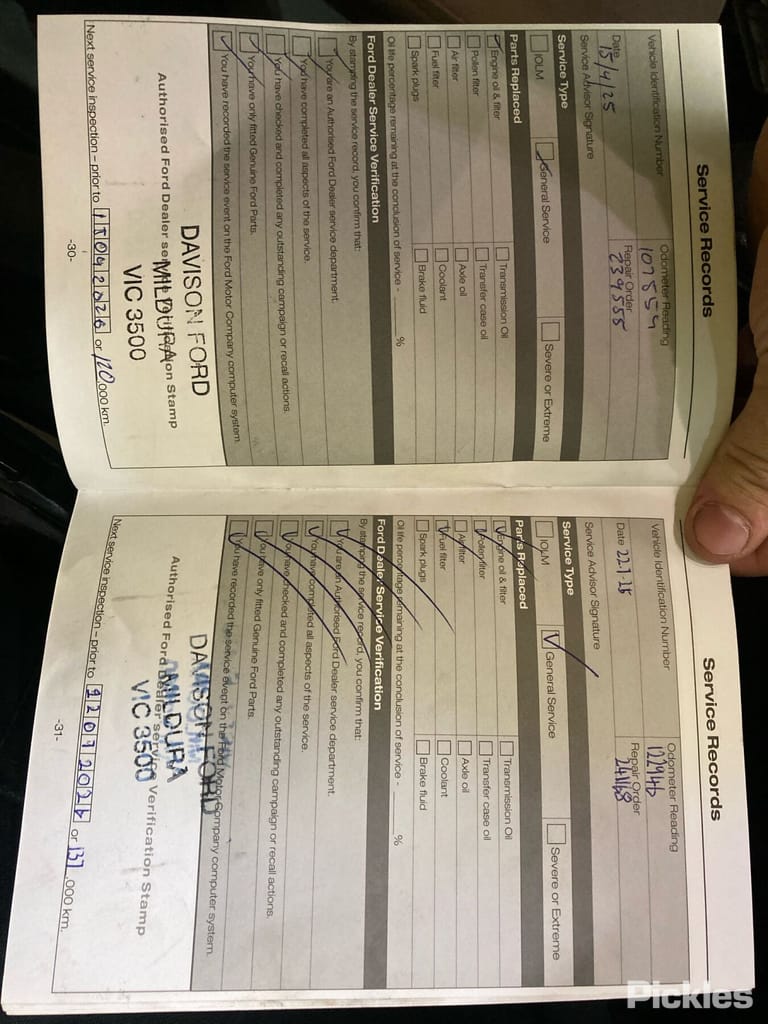 Service Records
Vehicle Identification Number
Odometer Reading
107854
Date
15/4/25
Repair Order
239555
Service Advisor Signature
Service Type
IOLM
General Service
Severe or Extreme
Parts Replaced
Engine oil & filter
Transmission Oil
Pollen filter
Transfer case oil
Air filter
Axle oil
Fuel filter
Coolant
Spark plugs
Brake fluid
Oil life percentage remaining at the conclusion of service - %
Ford Dealer Service Verification
By stamping the service record, you confirm that:
You are an Authorised Ford Dealer service department.
You have completed all aspects of the service.
You have checked and completed any outstanding campaign or recall actions.
You have only fitted Genuine Ford Parts.
You have recorded the service event on the Ford Motor Company computer system.
DAVISON FORD
MILDURA
VIC 3500
Authorised Ford Dealer service Verification Stamp
Next service inspection – prior to 15092026 or 120,000 km.
-30-
Service Records
Vehicle Identification Number
Odometer Reading
122946
Date 22.7.25
Repair Order
241168
Service Advisor Signature
Service Type
IOLM
General Service
Severe or Extreme
Parts Replaced
Engine oil & filter
Transmission Oil
Pollen filter
Transfer case oil
Air filter
Axle oil
Fuel filter
Coolant
Spark plugs
Brake fluid
Oil life percentage remaining at the conclusion of service - %
Ford Dealer Service Verification
By stamping the service record, you confirm that:
You are an Authorised Ford Dealer service department.
You have completed all aspects of the service.
You have checked and completed any outstanding campaign or recall actions.
You have only fitted Genuine Ford Parts.
You have recorded the service event on the Ford Motor Company computer system.
DAVISON FORD
MILDURA
VIC 3500
Authorised Ford Dealer service Verification Stamp
Next service inspection – prior to or 137,000 km.
-31-
Pickles